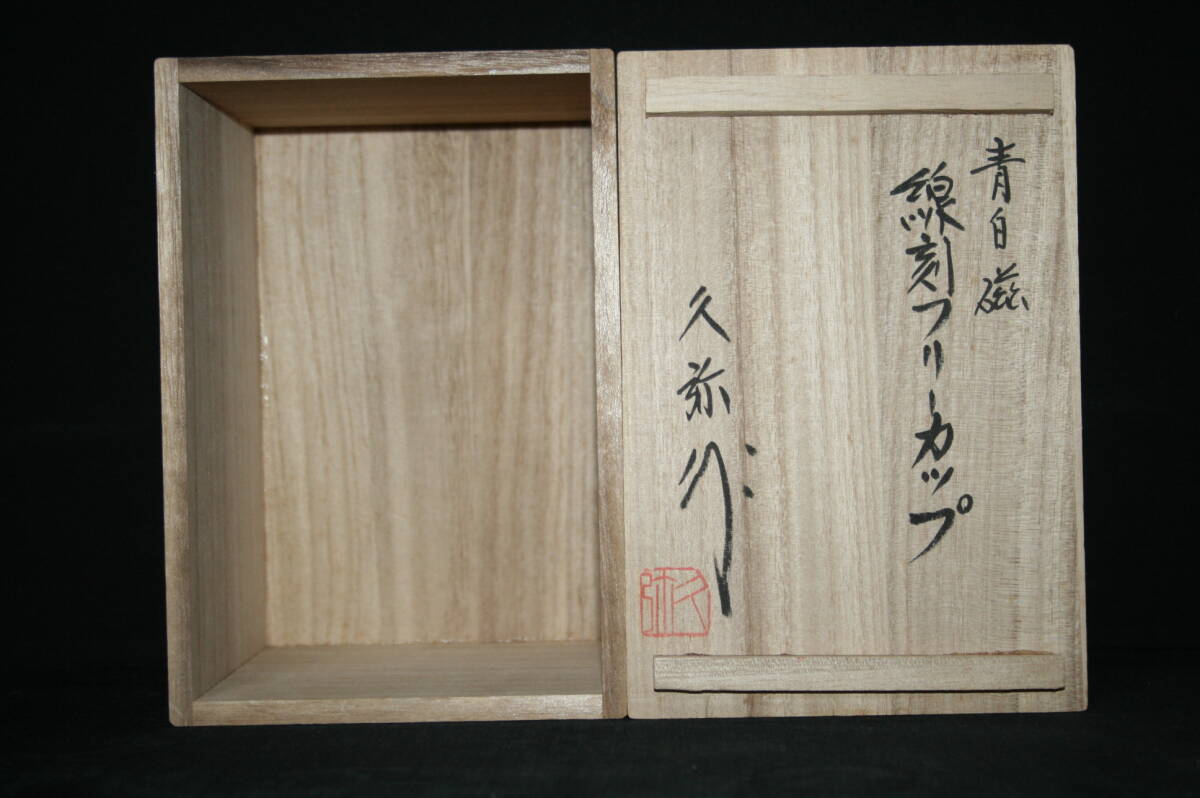 青白磁
線刻フリーカップ
久弥作
久弥